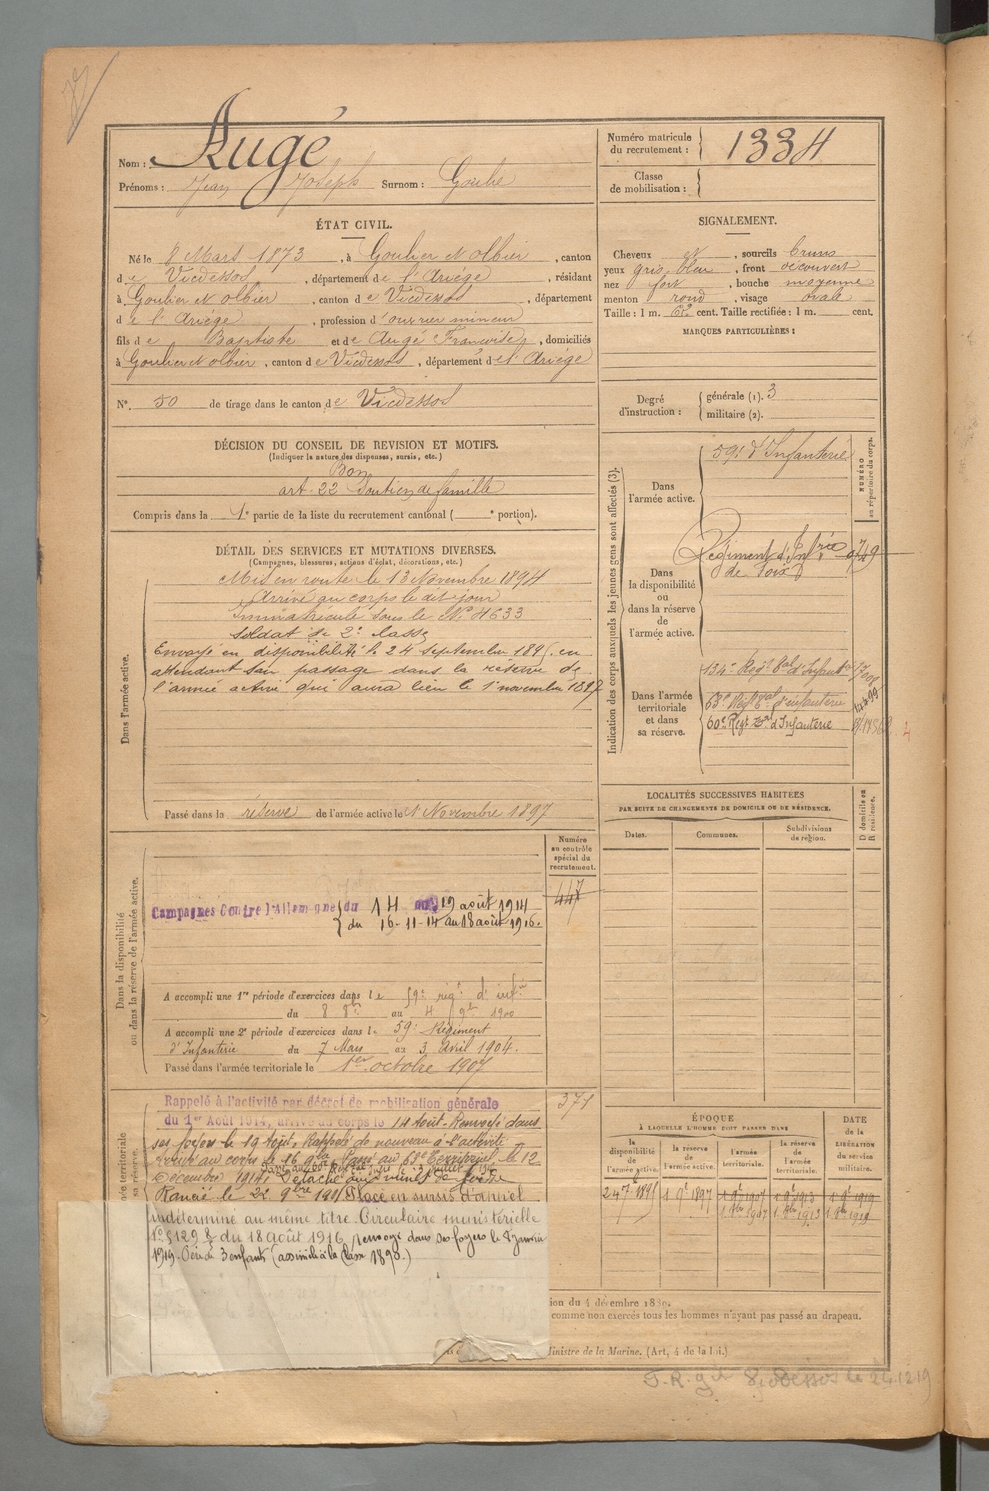 Augé
Nom :
Prénoms : Jean Joseph Surnom : Goulu
ÉTAT CIVIL.
Né le 2 Mars 1873, à Goulier et Olbier, canton
de Vicdessos, département de l'Ariége, résidant
à Goulier et Olbier, canton de Vicdessos, département
de l'Ariége, profession d'ouvrier mineur
fils de Baptiste et de Augé Françoise, domiciliés
à Goulier et Olbier, canton de Vicdessos, département de l'Ariége
N°. 50 de tirage dans le canton de Vicdessos
DÉCISION DU CONSEIL DE REVISION ET MOTIFS.
(Indiquer la nature des dispenses, sursis, etc.)
Bon
art. 22 Soutien de famille
Compris dans la 1e partie de la liste du recrutement cantonal ( e portion).
DÉTAIL DES SERVICES ET MUTATIONS DIVERSES.
(Campagnes, blessures, actions d'éclat, décorations, etc.)
Dans l'armée active.
Mis en route le 13 Novembre 1894
Arrivé au corps le dit jour
Immatriculé sous le N° 4633
Soldat de 2e classe
Envoyé en disponibilité le 24 septembre 1895 en
attendant son passage dans la réserve de
l'armée active qui aura lieu le 1er novembre 1897
Passé dans la réserve de l'armée active le 1 Novembre 1897
Numéro
au contrôle
spécial du
recrutement.
447
Dans la disponibilité
ou dans la réserve de l'armée active.
Campagnes Contre l'Allemagne du 14 au 19 août 1914
du 16-11-14 au 18 août 1916.
A accompli une 1re période d'exercices dans le 59e rég.t d'inf.ie
du 8 8bre au 4 9bre 1900
A accompli une 2e période d'exercices dans le 59e Régiment
d'Infanterie du 7 Mars au 3 Avril 1904.
Passé dans l'armée territoriale le 1er octobre 1907
371
Rappelé à l'activité par décret de mobilisation générale
du 1er Août 1914, arrivé au corps le 14 Août. Renvoyé dans
ses foyers le 19 Août. Rappelé de nouveau à l'activité
arrivé au corps le 16 9bre Passé au 63e Territorial le 12
Décembre 1914. Détaché aux mines de
Rancié le 22 9bre 1915 Placé en sursis d'appel
indéterminé au même titre. Circulaire ministérielle
N° 5129 8 du 18 août 1916, renvoyé dans ses foyers le 8 janvier
1919. Père de 3 enfants (assimilé à la classe 1890.)
Numéro matricule
du recrutement : 1334
Classe
de mobilisation :
SIGNALEMENT.
Cheveux et, sourcils bruns
yeux gris bleu, front découvert
nez fort, bouche moyenne
menton rond, visage ovale
Taille : 1 m. 62 cent. Taille rectifiée : 1 m. cent.
MARQUES PARTICULIÈRES :
Degré
d'instruction :
générale (1). 3
militaire (2).
Indication des corps auxquels les jeunes gens sont affectés (3).
NUMÉRO
au répertoire du corps.
Dans
l'armée active.
59e d'Infanterie
Dans
la disponibilité
ou
dans la réserve
de
l'armée active.
Régiment d'Inf.rie
de Foix
Dans l'armée
territoriale
et dans
sa réserve.
134e Rég.t T.al d'Infant.rie
63e Rég.t T.al d'infanterie
60e Reg.t T.al d'Infanterie
LOCALITÉS SUCCESSIVES HABITÉES
PAR SUITE DE CHANGEMENTS DE DOMICILE OU DE RÉSIDENCE.
Dates.
Communes.
Subdivisions
de région.
D domicile ou
R résidence.
ÉPOQUE
À LAQUELLE L'HOMME DOIT PASSER DANS
DATE
de la
LIBÉRATION
du service
militaire.
la
disponibilité
de
l'armée active.
la réserve
de
l'armée active.
l'armée
territoriale.
la réserve
de
l'armée
territoriale.
24 7bre 1895
1 9bre 1897
1 9bre 1907
1 9bre 1913
1 9bre 1919
1 8bre 1907
1 8bre 1913
1 8bre 1919
ion du 4 décembre 1889.
comme non exercés tous les hommes n'ayant pas passé au drapeau.
Ministre de la Marine. (Art. 4 de la loi.)